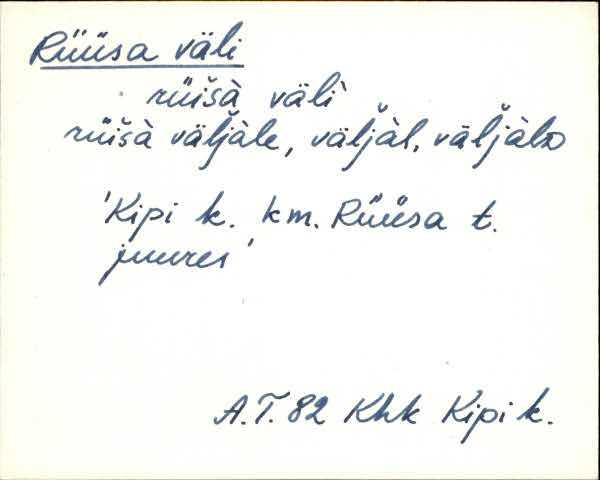 Rüüsa väli
rüišà välì̬
rüišà välǰàle, välǰàl, välǰàlᴅ
'Kipi k. km. Rüüsa t.
juures'
A.T. 82 Khk Kipi k.